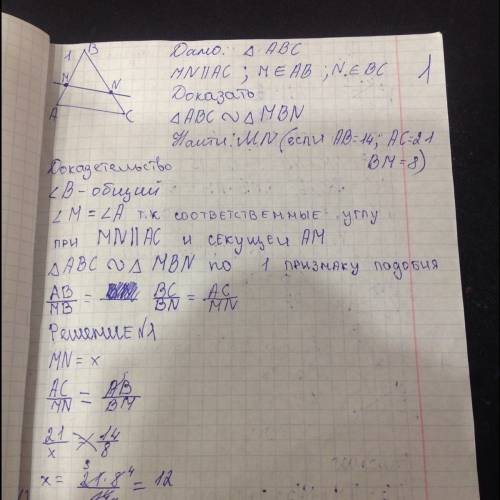 1
B
M
N
A
C
Дано: △ ABC
MN∥AC ; M∈AB ; N∈BC
1
Доказать
△ABC ∾ △ MBN
Найти: MN (если AB=14; AC=21
BM=8)
Доказательство
∠B - общий
∠M = ∠A т.к соответственные углу
при MN∥AC и секущей AM
△ABC ∾ △ MBN по 1 признаку подобия
AB/MB = BC/BN = AC/MN
Решение №1
MN = x
AC/MN = AB/BM
21/x = 14/8
x = 21·8/14 = 12